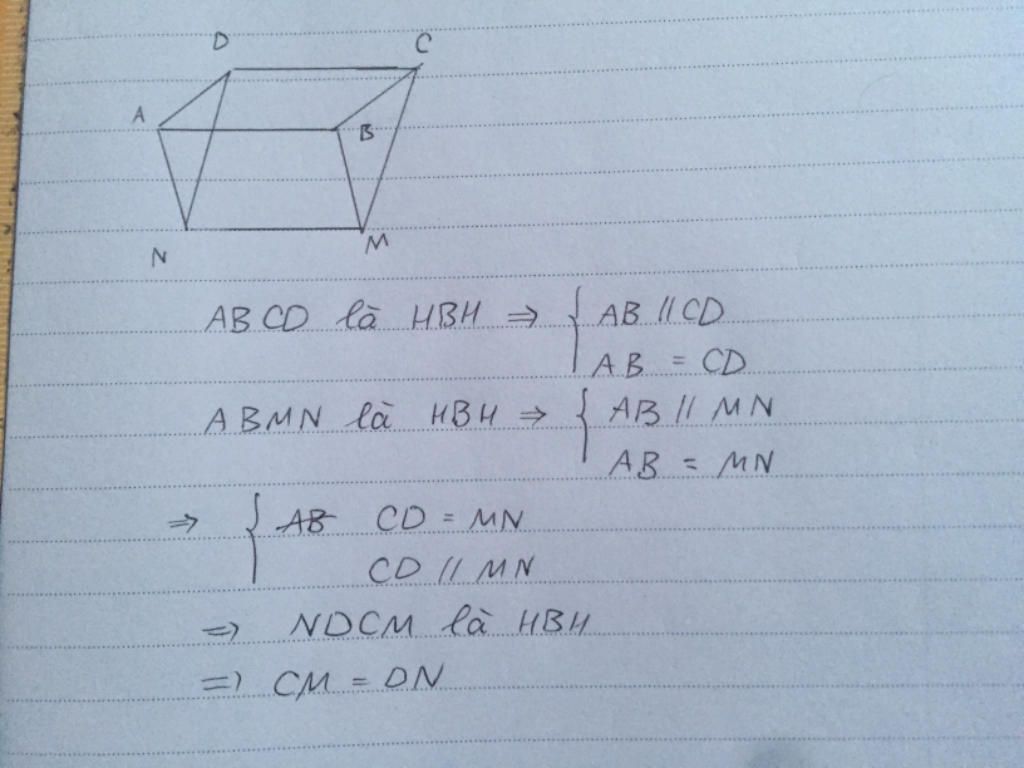 D C
A B
N M
ABCD là HBH ⇒ { AB // CD
AB = CD
ABMN là HBH ⇒ { AB // MN
AB = MN
⇒ { ~~AB~~ CD = MN
CD // MN
⇒ NDCM là HBH
⇒ CM = DN